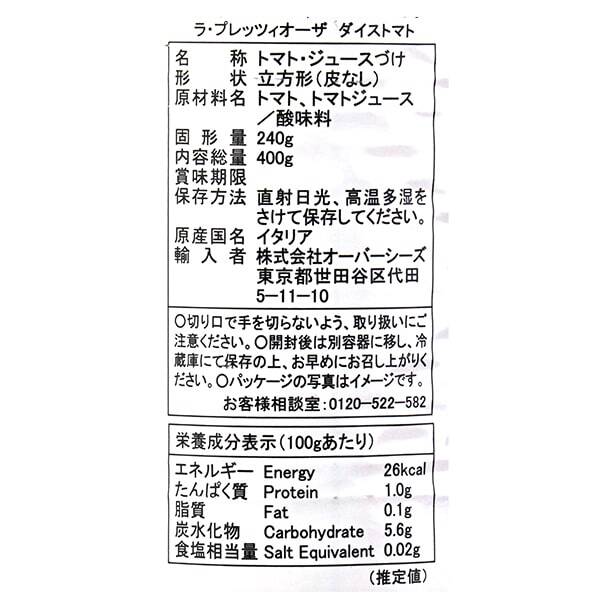 ラ・プレッツィオーザ ダイストマト
名称 トマト・ジュースづけ
形状 立方形（皮なし）
原材料名 トマト、トマトジュース
／酸味料
固形量 240g
内容総量 400g
賞味期限
保存方法 直射日光、高温多湿を
さけて保存してください。
原産国名 イタリア
輸入者 株式会社オーバーシーズ
東京都世田谷区代田
5-11-10
〇切り口で手を切らないよう、取り扱いにご
注意ください。〇開封後は別容器に移し、冷
蔵庫にて保存の上、お早めにお召し上がりく
ださい。〇パッケージの写真はイメージです。
お客様相談室:0120-522-582
栄養成分表示（100gあたり）
エネルギー Energy 26kcal
たんぱく質 Protein 1.0g
脂質 Fat 0.1g
炭水化物 Carbohydrate 5.6g
食塩相当量 Salt Equivalent 0.02g
（推定値）